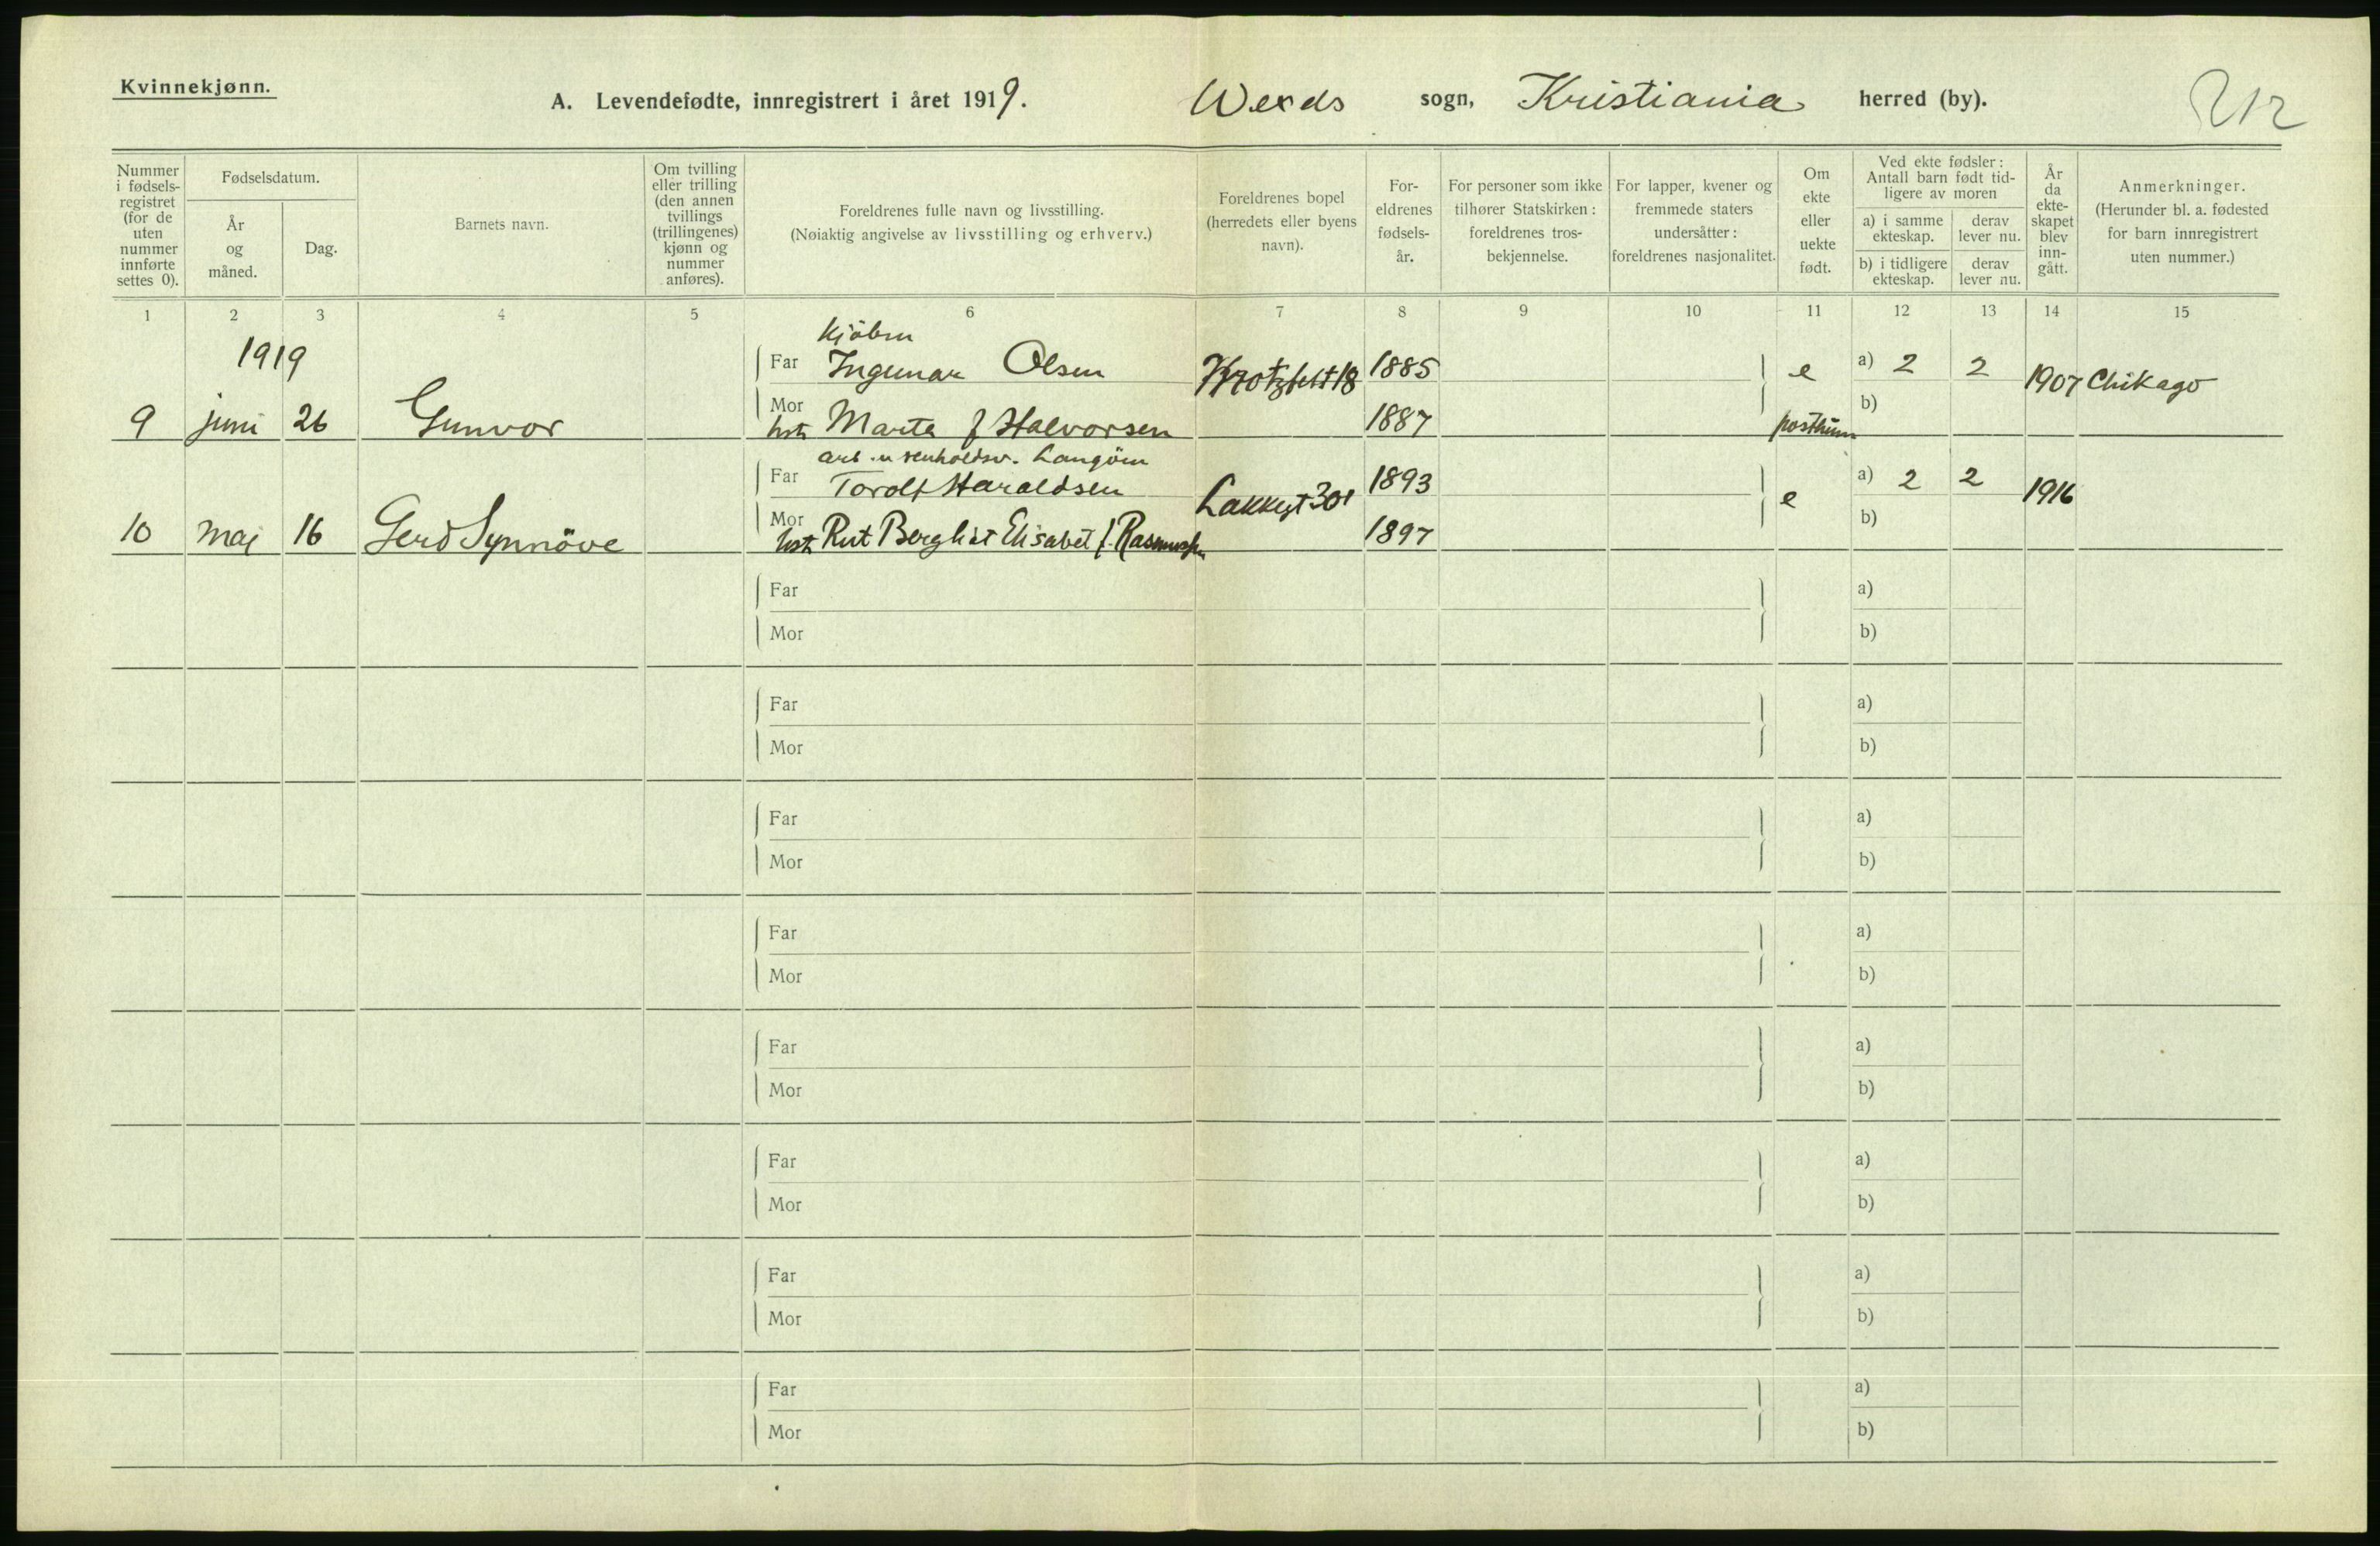 Kvinnekjønn.
A. Levendefødte, innregistrert i året 1919. Wexels sogn, Kristiania herred (by).
212
Nummer i fødsels-registret (for de uten nummer innførte settes 0).
Fødselsdatum.
År og måned.
Dag.
Barnets navn.
Om tvilling eller trilling (den annen tvillings (trillingenes) kjønn og nummer anføres).
Foreldrenes fulle navn og livsstilling.
(Nøiaktig angivelse av livsstilling og erhverv.)
Foreldrenes bopel (herredets eller byens navn).
For-eldrenes fødsels-år.
For personer som ikke tilhører Statskirken: foreldrenes tros-bekjennelse.
For lapper, kvener og fremmede staters undersåtter: foreldrenes nasjonalitet.
Om ekte eller uekte født.
Ved ekte fødsler: Antall barn født tid-ligere av moren
a) i samme ekteskap.
derav lever nu.
b) i tidligere ekteskap.
derav lever nu.
År da ekte-skapet blev inn-gått.
Anmerkninger.
(Herunder bl. a. fødested for barn innregistrert uten nummer.)
1 2 3 4 5 6 7 8 9 10 11 12 13 14 15
Kjøbm
1919 Far Ingemar Olsen 18 1885 e a) 2 2 1907 Chikago
9 juni 26 Gunvor Mor hst Marta f Halvorsen 1887 posthum b)
arb Langøen
Far Torolf Haraldsen Lakkegt 30 1893 e a) 2 2 1916
10 mai 16 Gerd Synnöve Mor hst Rut Bergliot Elisabet f. Rasmussen 1897 b)
Far a)
Mor b)
Far a)
Mor b)
Far a)
Mor b)
Far a)
Mor b)
Far a)
Mor b)
Far a)
Mor b)
Far a)
Mor b)
Far a)
Mor b)